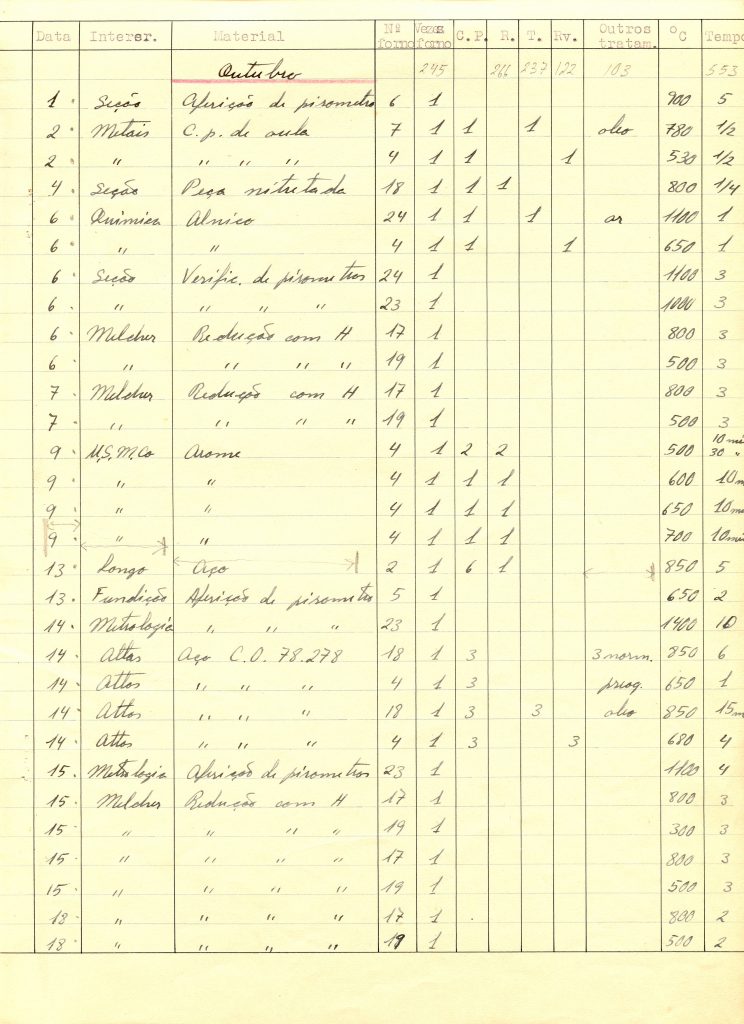 Data Interer. Material Nº forno Vezes forno C.P. R. T. Rv. Outros tratam. ºC Tempo
Outubro 245 266 237 122 103 553
1 Seção Aferição de pirometro 6 1 900 5
2 Metais C.p. de aula 7 1 1 1 oleo 780 1/2
2 " " " " " 4 1 1 1 530 1/2
4 Seção Peça nitretada 18 1 1 1 800 1/4
6 Quimica Alnico 24 1 1 1 ar 1100 1
6 " " 4 1 1 1 650 1
6 Seção Verific. de pirometros 24 1 1100 3
6 " " " " 23 1 1000 3
6 Melcher Redução com H 17 1 800 3
6 " " " " 19 1 500 3
7 Melcher Redução com H 17 1 800 3
7 " " " " 19 1 500 3
9 U.S.M.Co Arame 4 1 2 2 500 10 min 30 "
9 " " 4 1 1 1 600 10 m
9 " " 4 1 1 1 650 10 m
9 " " 4 1 1 1 700 10 min
13 Longo Aço 2 1 6 1 850 5
13 Fundição Aferição de pirometro 5 1 650 2
14 Metrologia " " " 23 1 1400 10
14 Attas Aço C.O. 78.278 18 1 3 3 norm. 850 6
14 Attas " " " 4 1 3 650 1
14 Attas " " " 18 1 3 3 oleo 850 15 m
14 Attas " " " 4 1 3 3 680 4
15 Metrologia Aferição de pirometros 23 1 1100 4
15 Melcher Redução com H 17 1 800 3
15 " " " " 19 1 300 3
15 " " " " 17 1 800 3
15 " " " " 19 1 500 3
18 " " " " 17 1 800 2
18 " " " " 19 1 500 2